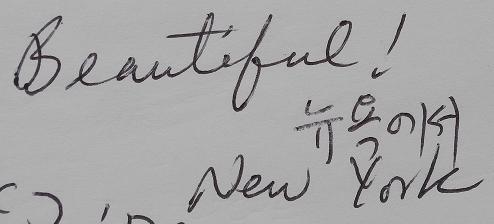 Beautiful!
뉴욕에서
New York